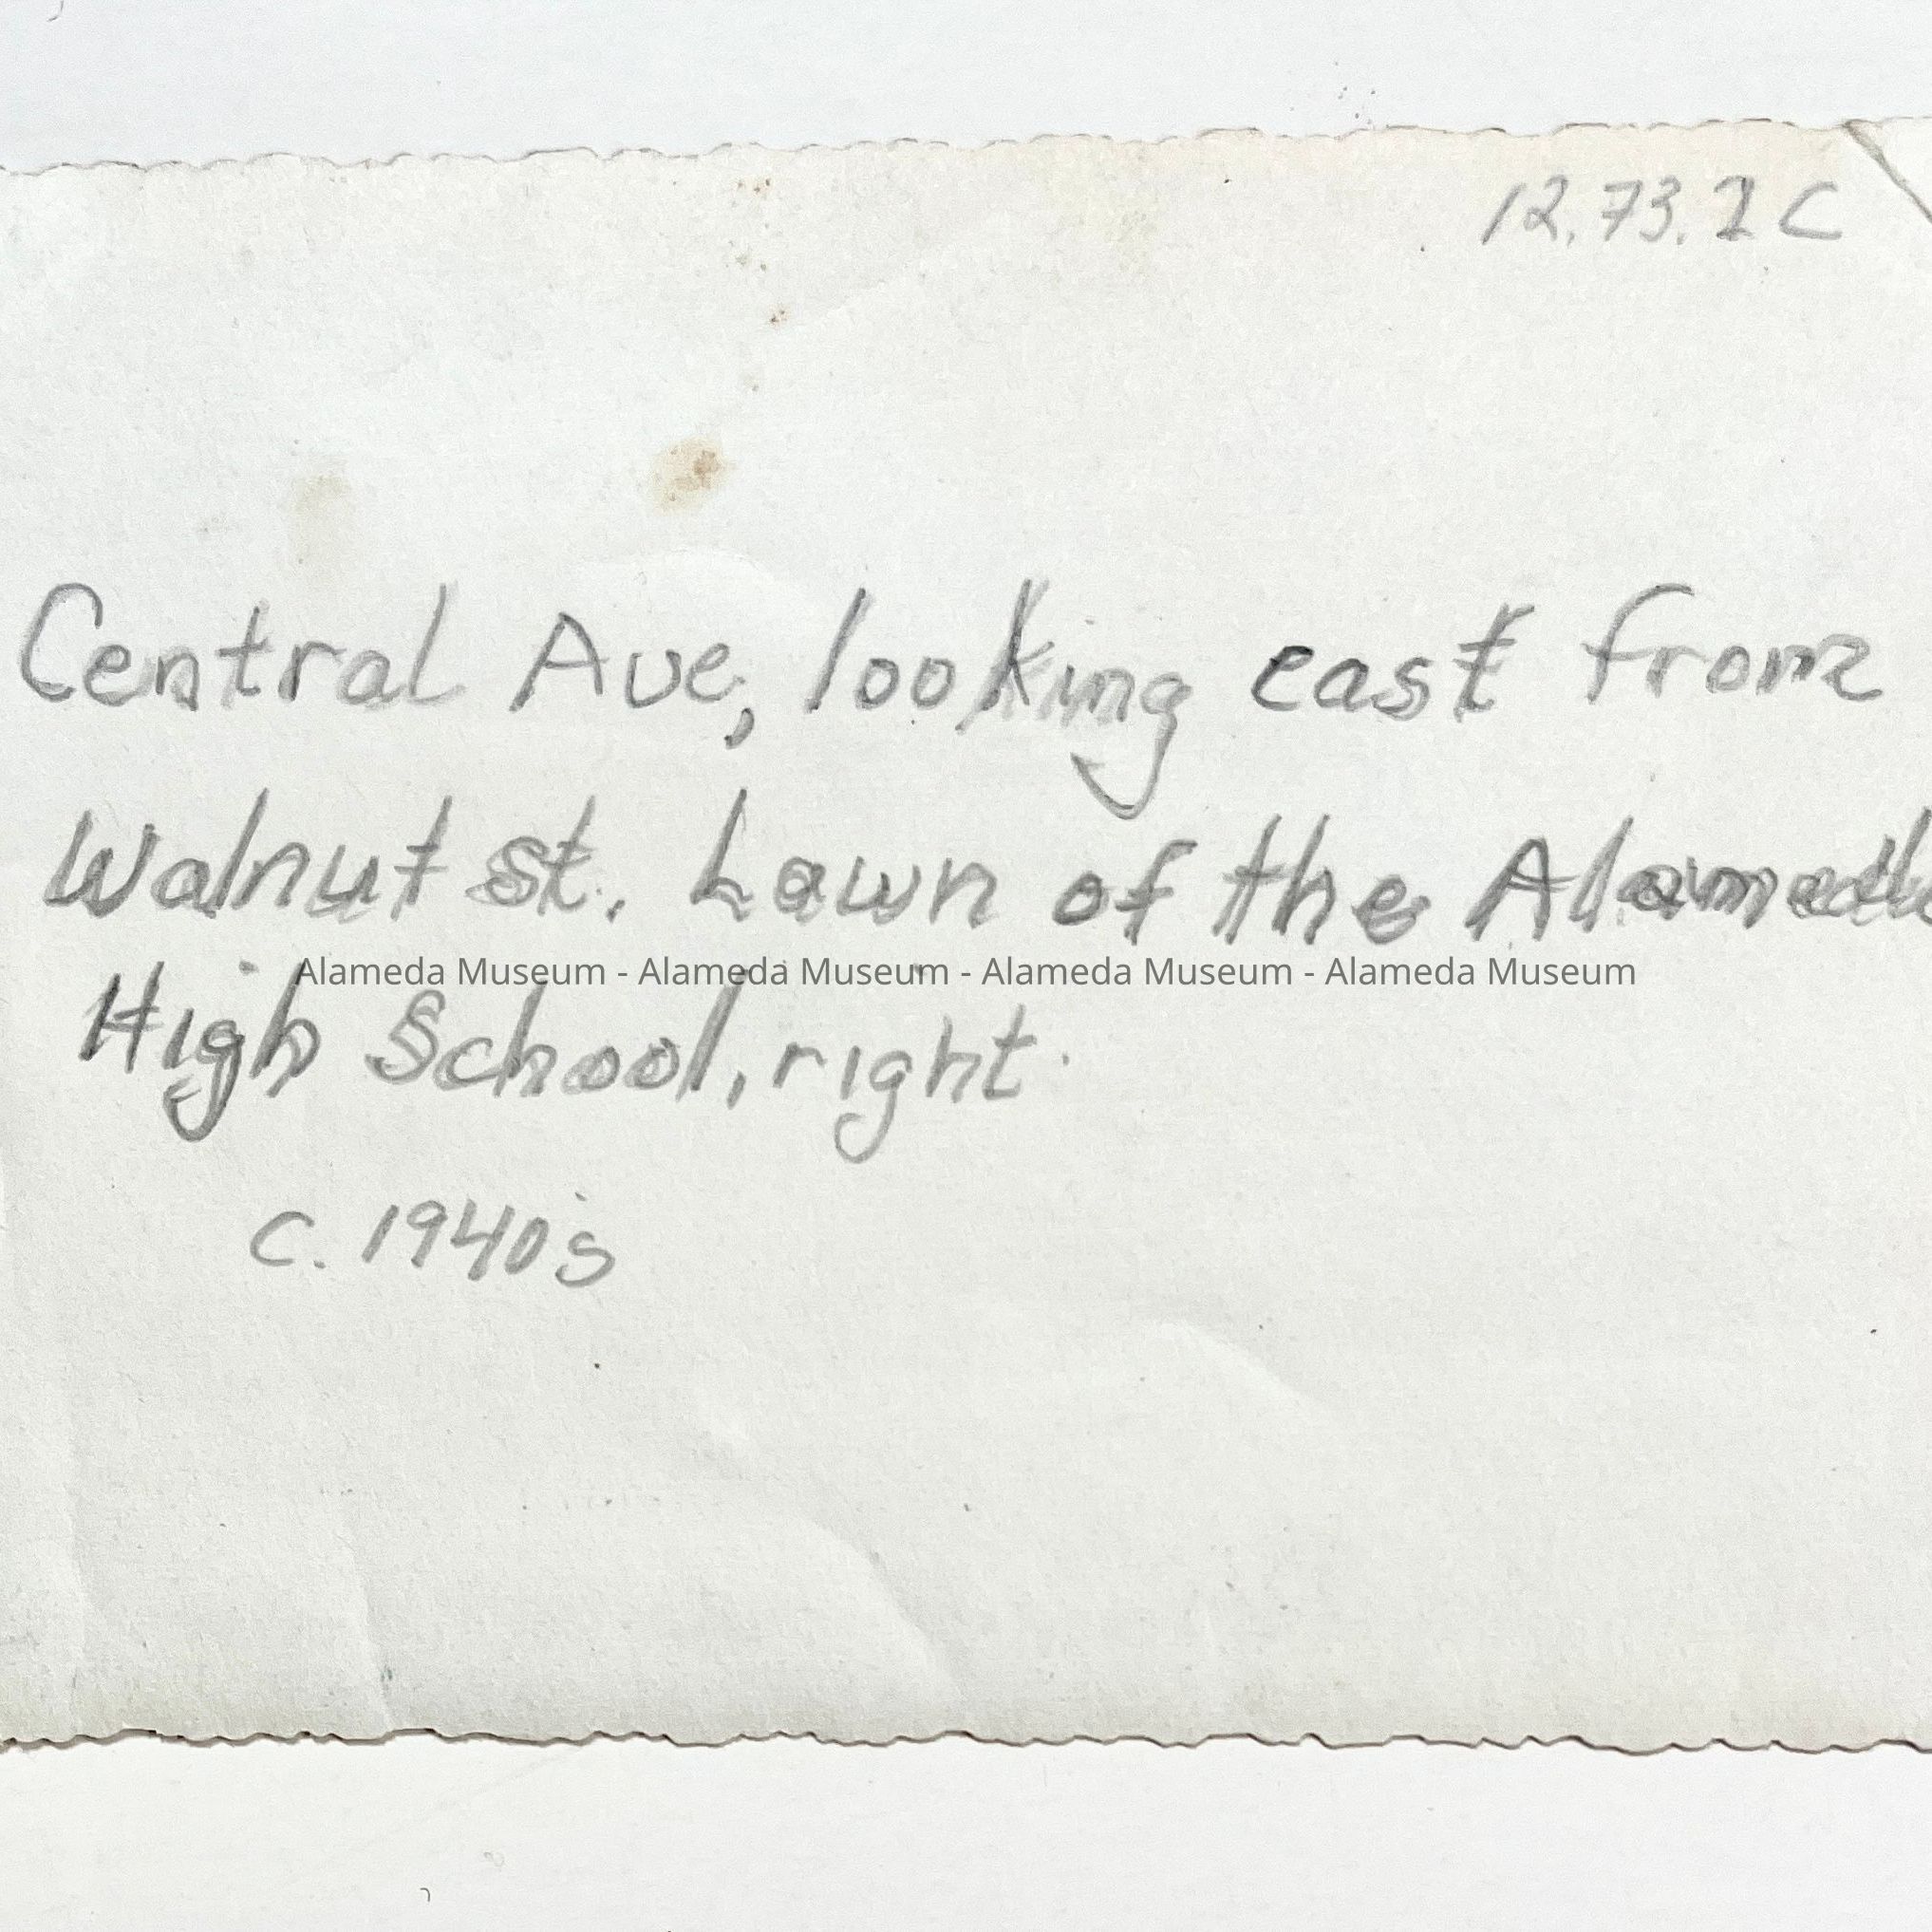 12.73.2 C
Central Ave, looking east from
Walnut st. Lawn of the Alameda
Alameda Museum - Alameda Museum - Alameda Museum - Alameda Museum
High School, right.
c. 1940's